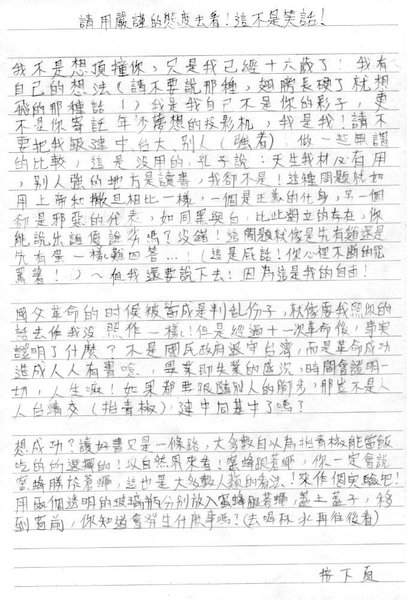 請用嚴謹的態度去看!這不是笑話!
我不是想頂撞你,只是我已經十六歲了!我有
自己的想法(請不要說那種,翅膀長硬了就想
飛的那種話!)我是我自己不是你的影子,更
不是你寄託年少夢想的投影机,我是我!請不
要把我跟建中台大別人(強者)做一起無謂
的比較,這是沒用的,孔子說:天生我材必有用
,別人強的地方是讀書,我卻不是!這種問題就如
用上帝和撒旦相比一樣,一個是正義的化身,另一個
卻是邪惡的代表,如同黑與白,比此對立的存在,你
能說出誰優誰劣嗎?沒錯!這問題就像是先有雞還是
先有蛋一樣難回答…!(這是屁話!你心裡不斷的咒
罵著!)~但我還要說下去!因為這是我的自由!
國父革命的時候被當成是判亂份子,就像要我照你的
話去做我沒照作一樣!但是經過十一次革命後,事實
證明了什麼?不是國民政府退守台灣,而是革命成功
造成人人有書唸,畢業即失業的盛況,時間會證明一
切,人生嘛!如果都要跟隨別人的腳步,那豈不是人
人台清交(指青椒),建中同基中了嗎?
想成功?讀好書又是一條路,大多數自以為指青椒能當飯
吃的的選擇的!以自然界來看!蜜蜂跟蒼蠅,你一定會說
蜜蜂勝於蒼蠅,這也是大多數人類的看法!來作個實驗吧!
用兩個透明的玻璃瓶分別放入蜜蜂跟蒼蠅,蓋上蓋子,移
到窗前,你知道會發生什麼事嗎?(去喝杯水再往後看)
按下頁